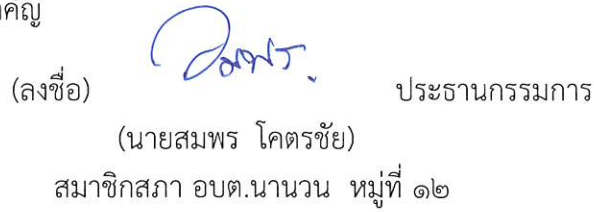 (ลงชื่อ) สมพร ประธานกรรมการ
(นายสมพร โคตรชัย)
สมาชิกสภา อบต.นานวน หมู่ที่ ๑๒